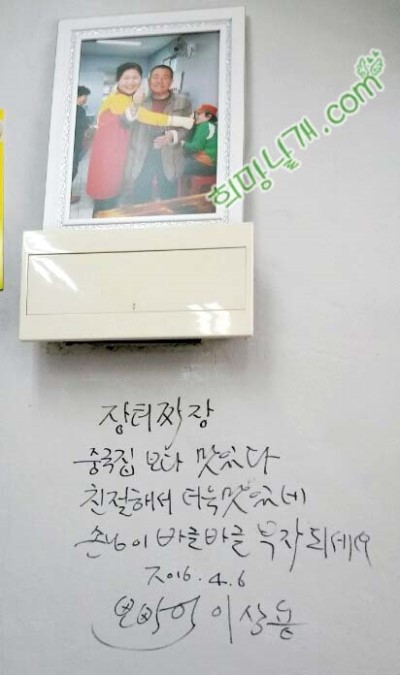 희망날개.com
장터짜장
중국집 보다 맛있다
친절해서 더욱맛있네
손님이 바글바글 부자되세요
2016.4.6
뽀빠이 이상용